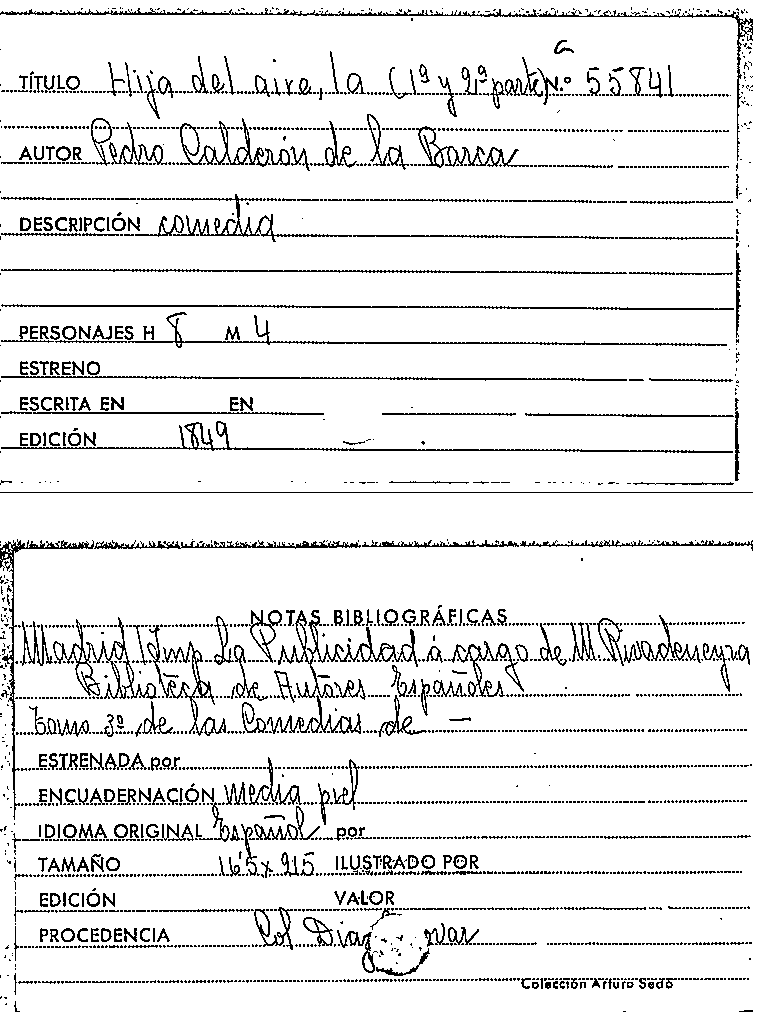 G
TÍTULO Hija del aire, la (1ª y 2ª parte) N.º 55841
AUTOR Pedro Calderón de la Barca
DESCRIPCIÓN comedia
PERSONAJES H 8 M 4
ESTRENO
ESCRITA EN EN
EDICIÓN 1849
NOTAS BIBLIOGRÁFICAS
Madrid Imp La Publicidad á cargo de M. Rivadeneyra
Biblioteca de Autores Españoles
Tomo 3º de las Comedias de —
ESTRENADA por
ENCUADERNACIÓN media piel
IDIOMA ORIGINAL Español por
TAMAÑO 16'5 x 215 ILUSTRADO POR
EDICIÓN VALOR
PROCEDENCIA Col Diaz
Colección Arturo Sedó